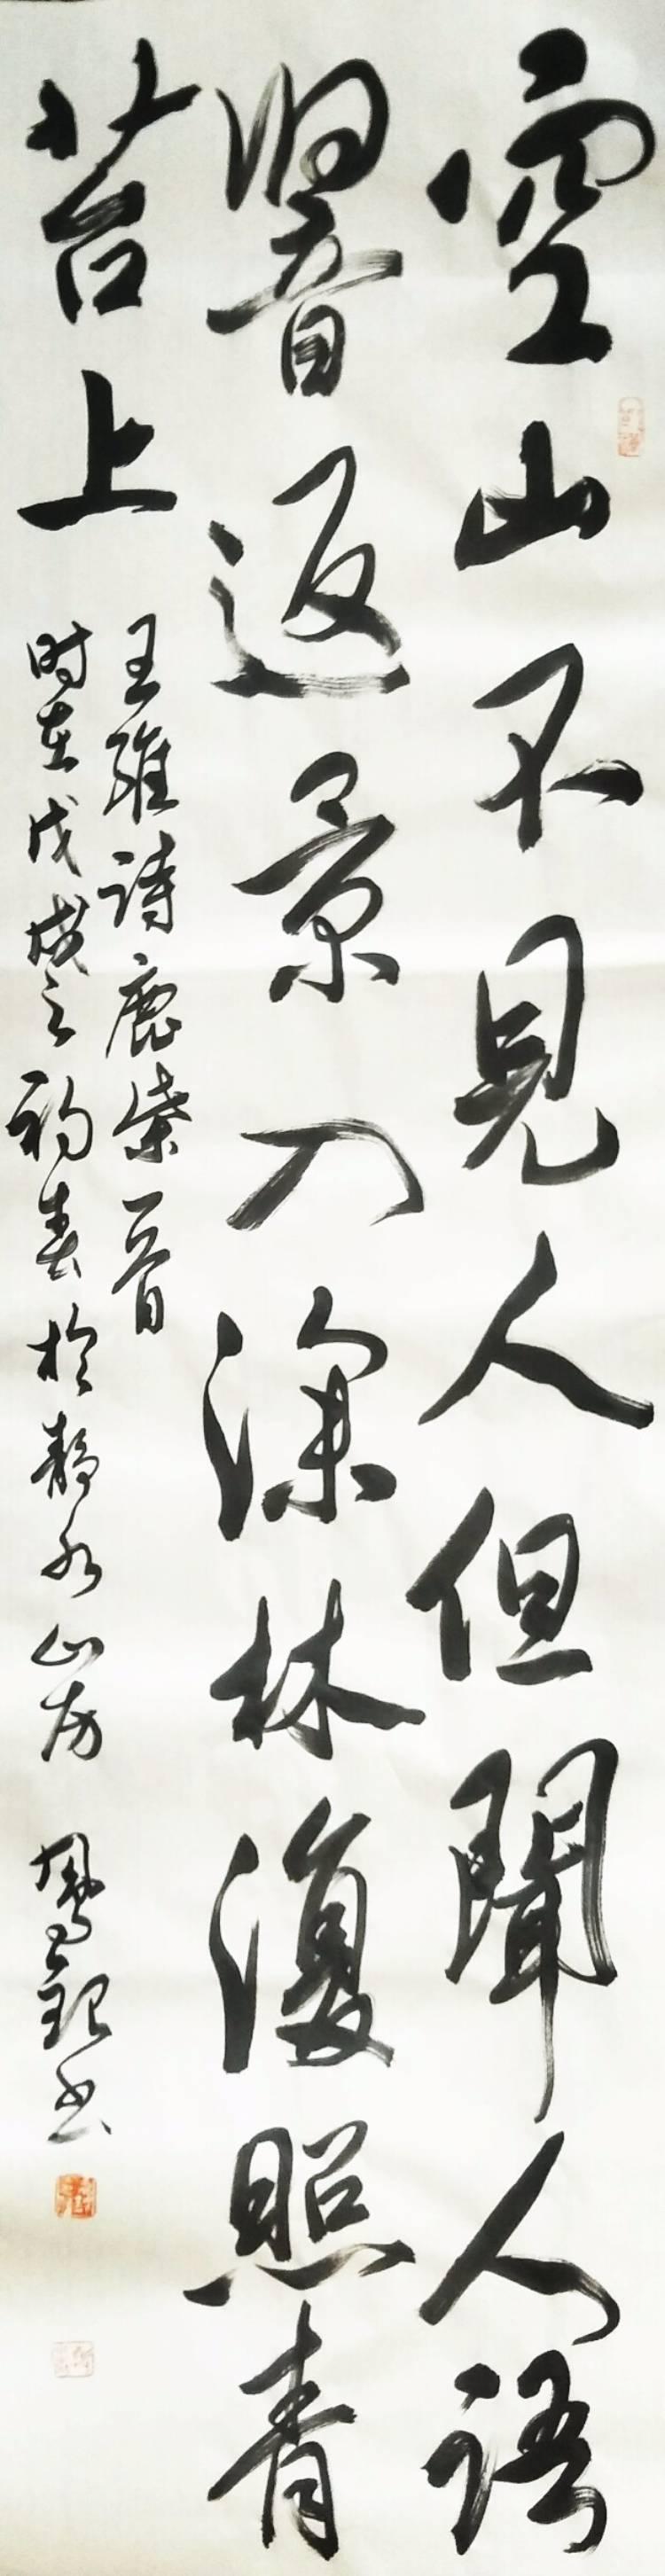 空山不見人但聞人语
響返景入深林復照青
苔上
王維诗鹿柴一首
时在戊戌之初春於静水山房 鳳观书